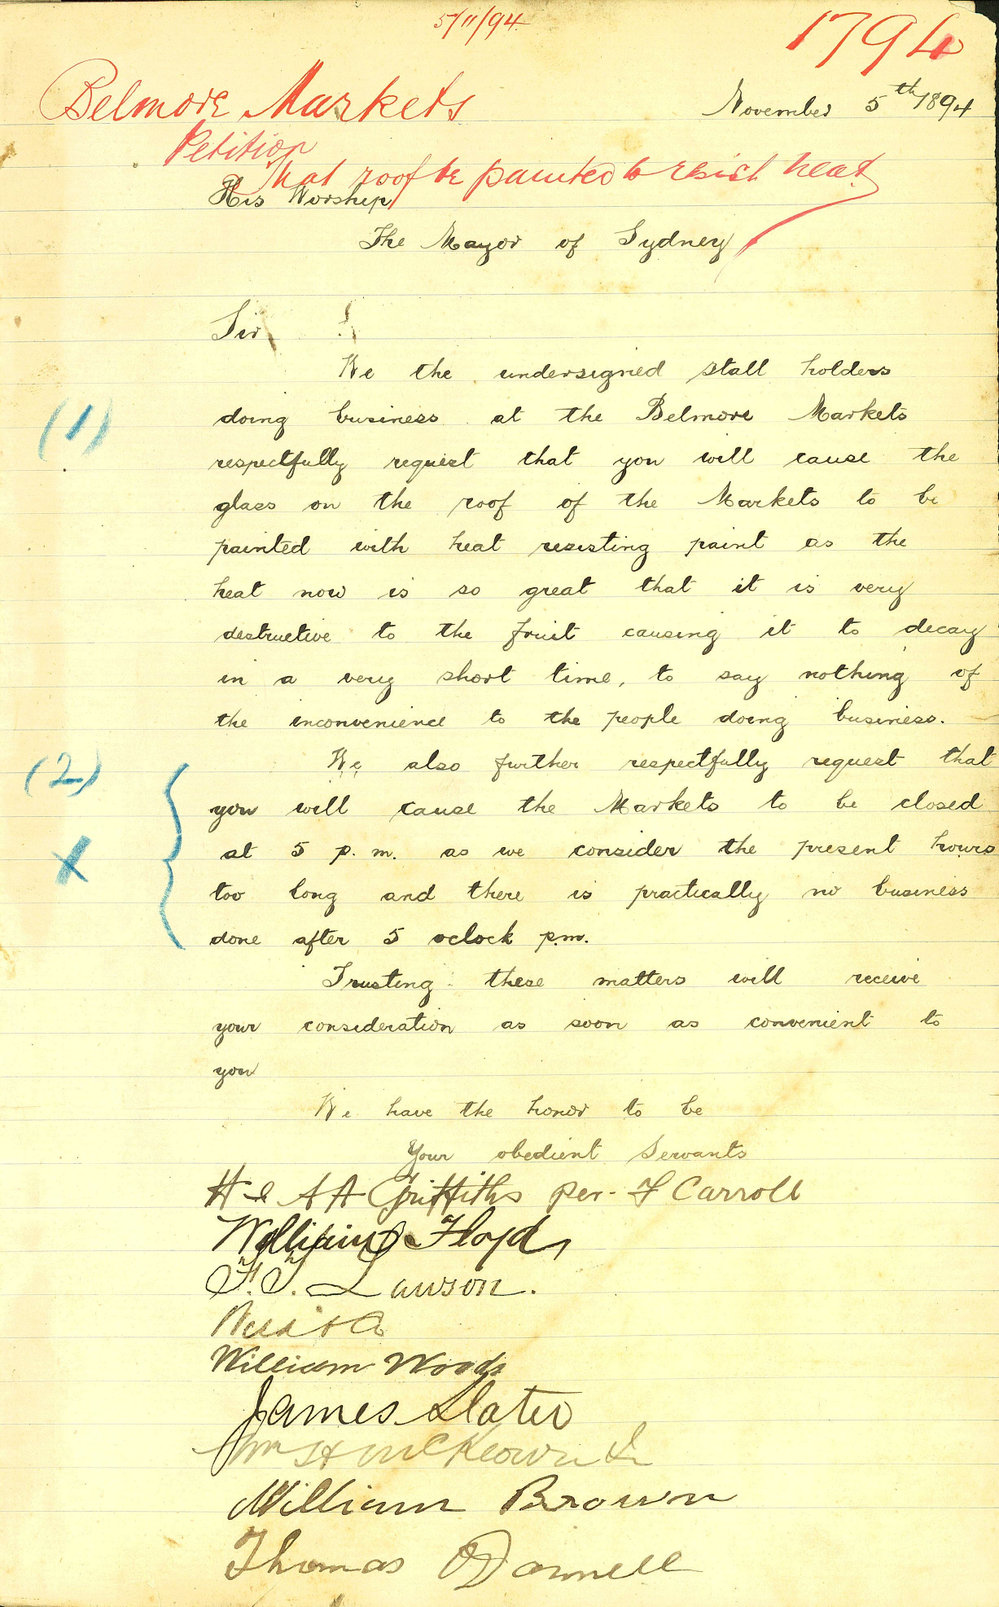 5/11/94
1794
Belmore Markets
November 5th 1894
Petition
that roof be painted to resist heat
His Worship
The Mayor of Sydney
Sir
We the undersigned stall holders
(1)
doing business at the Belmore Markets
respectfully request that you will cause the
glass on the roof of the Markets to be
painted with heat resisting paint as the
heat now is so great that it is very
destructive to the fruit causing it to decay
in a very short time, to say nothing of
the inconvenience to the people doing business.
(2)
We also further respectfully request that
you will cause the Markets to be closed
X
at 5 p.m. as we consider the present hours
too long and there is practically no business
done after 5 oclock p.m.
Trusting these matters will receive
your consideration as soon as convenient to
you
We have the honor to be
Your obedient Servants
H & A A Griffiths per F Carroll
William Floyd
F. T. Lawson.
William Woods
James Slater
Wm H McKeown
William Brown
Thomas O'Donnell